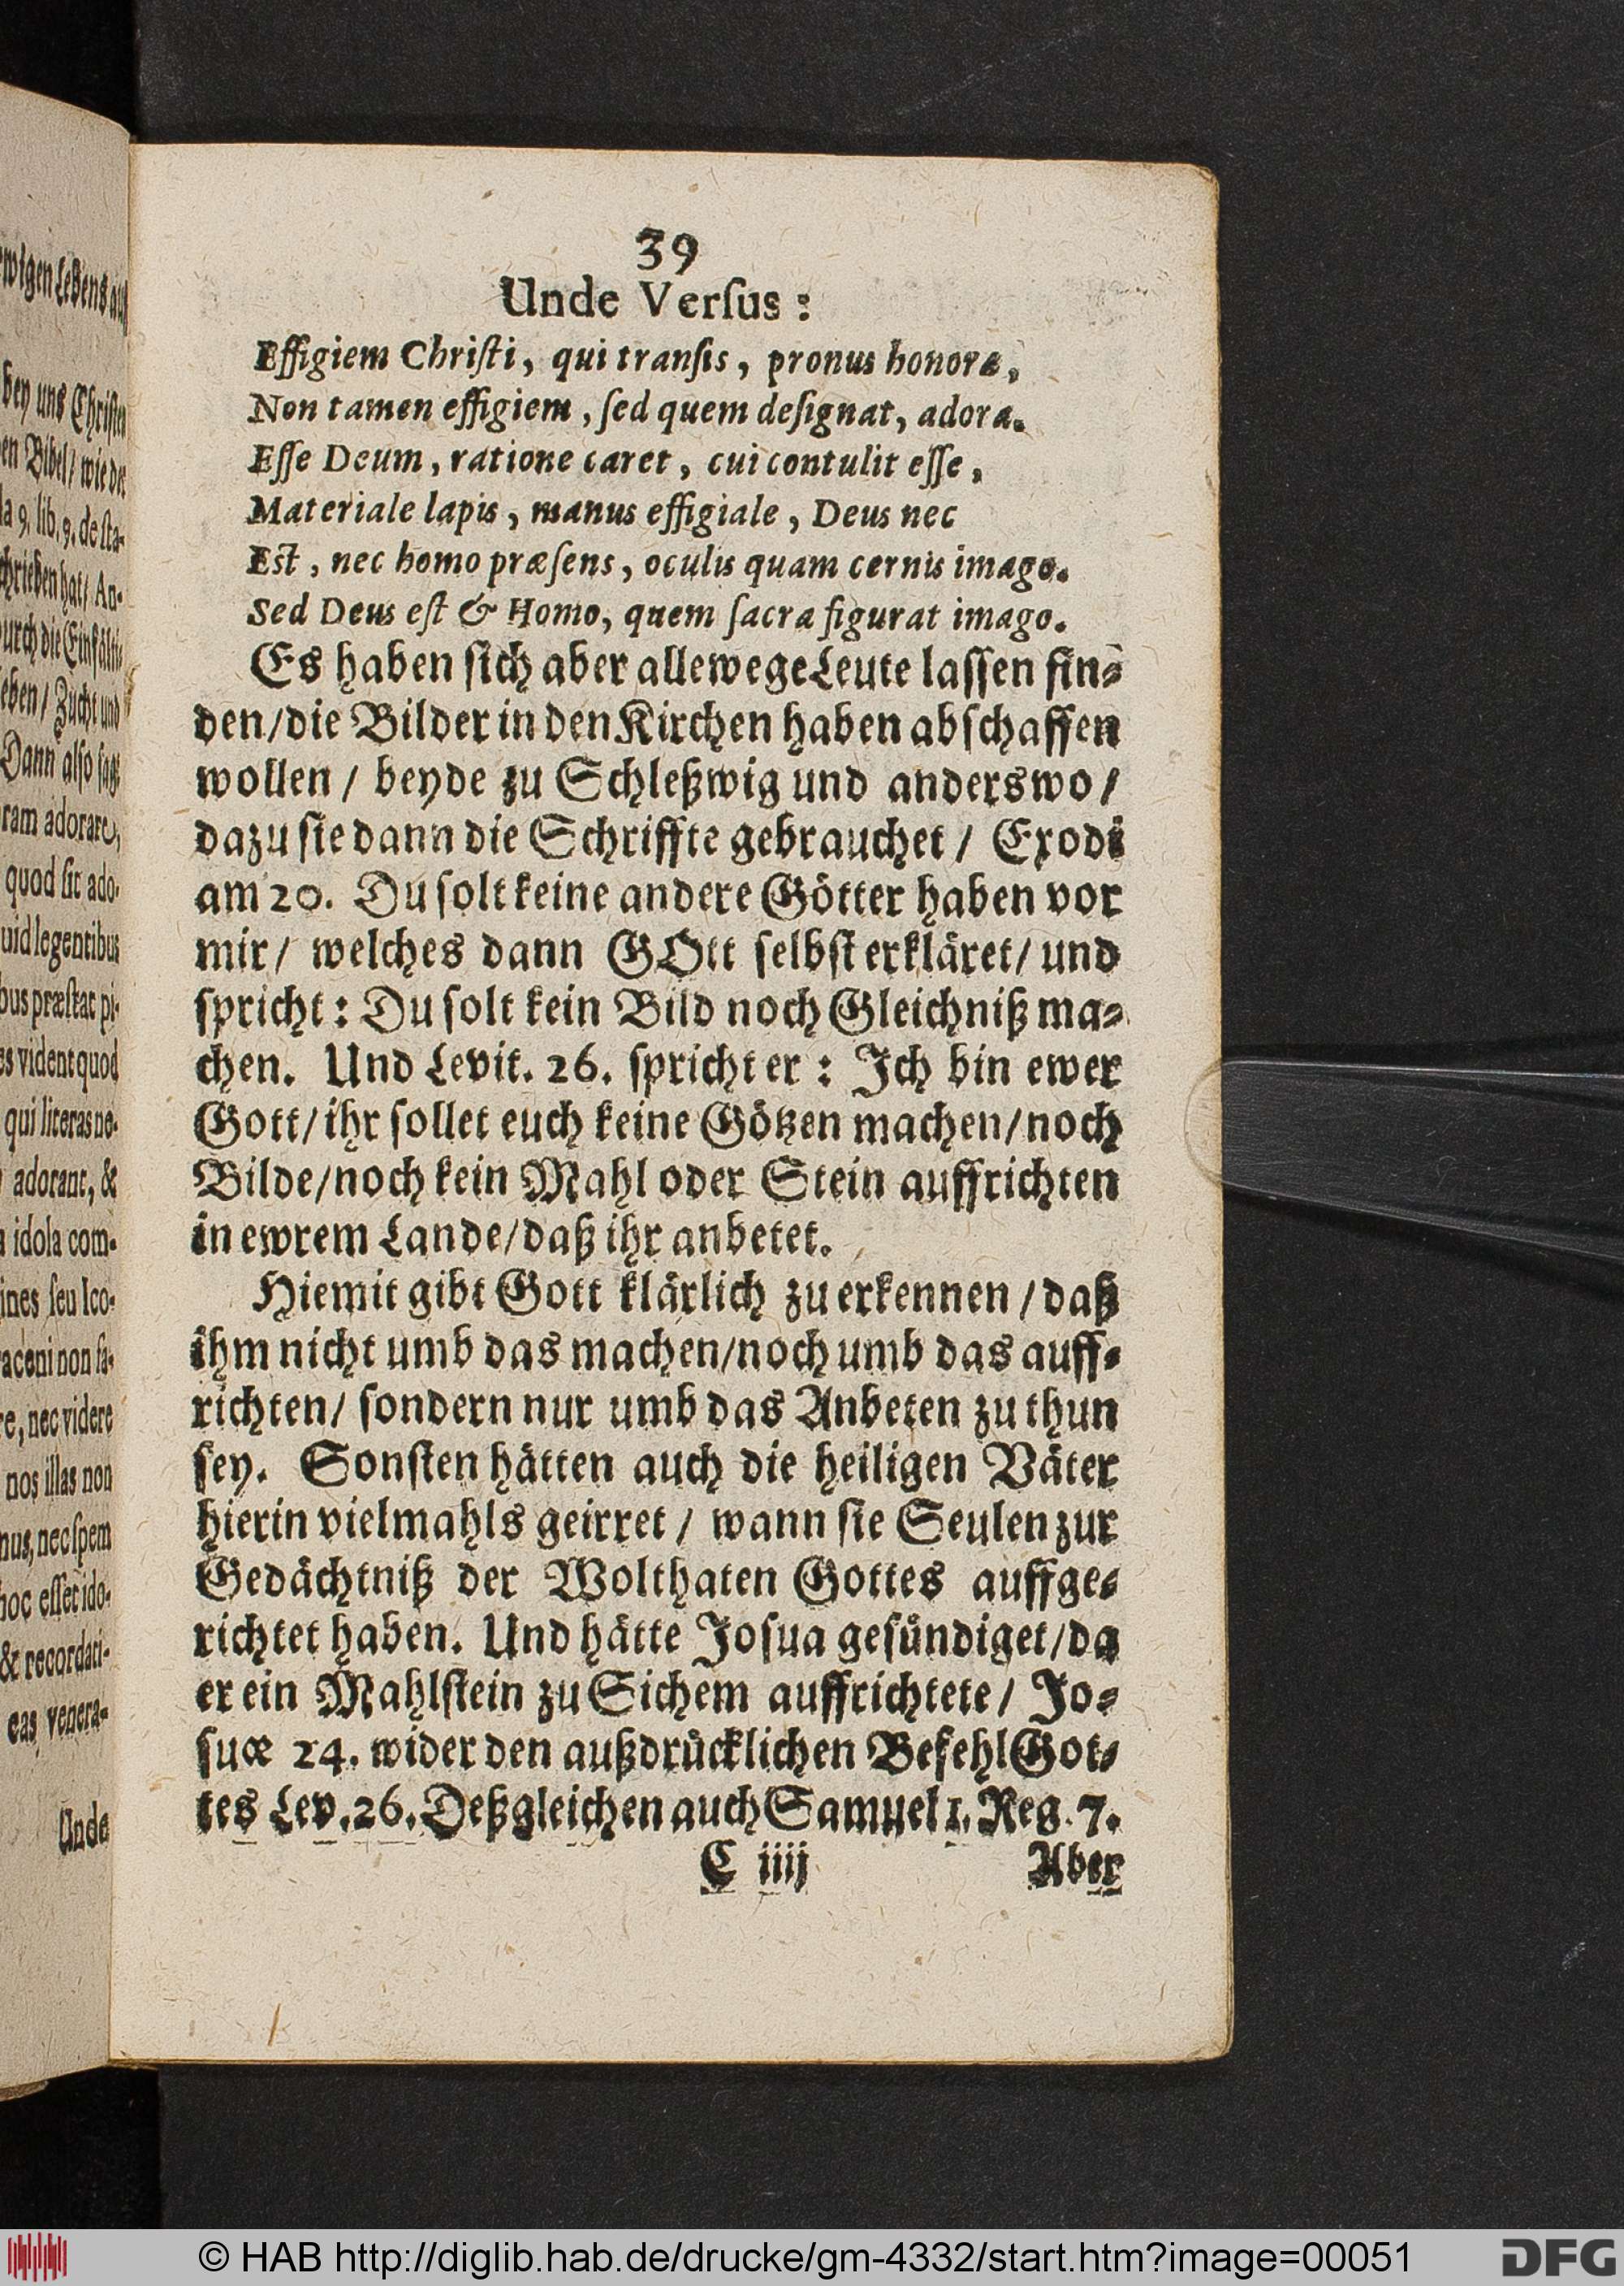 wigen Lebens auß
bey uns Christen
en Bibel / wie der
la 9. lib. 9. de sta-
hrieben hat / An-
urch die Einfälti-
eben / Zucht und
Dann also sagt
ram adorare,
quod sic ado-
uid legentibus
bus præstat pi-
es vident quod
qui literas ne-
adorant, &
idola com-
ines seu Ico-
aceni non sa-
re, nec videre
nos illas non
mus, nec spem
hoc esset ido-
& recordati-
eas venera-
Unde
39
Unde Verſus:
Effigiem Chriſti, qui tranſis, pronus honora,
Non tamen effigiem, ſed quem deſignat, adora.
Eſſe Deum, ratione caret, cui contulit eſſe,
Materiale lapis, manus effigiale, Deus nec
Eſt, nec homo præſens, oculis quam cernis imago.
Sed Deus eſt & Homo, quem ſacra figurat imago.
Es haben ſich aber allewege Leute laſſen fin-
den / die Bilder in den Kirchen haben abſchaffen
wollen / beyde zu Schleßwig und anderswo /
dazu ſie dann die Schriffte gebrauchet / Exodi
am 20. Du ſolt keine andere Götter haben vor
mir / welches dann GOtt ſelbſt erkläret / und
ſpricht: Du ſolt kein Bild noch Gleichniß ma-
chen. Und Levit. 26. ſpricht er: Ich bin ewer
Gott / ihr ſollet euch keine Götzen machen / noch
Bilde / noch kein Mahl oder Stein auffrichten
in ewrem Lande / daß ihr anbetet.
Hiemit gibt Gott klärlich zu erkennen / daß
ihm nicht umb das machen / noch umb das auff-
richten / ſondern nur umb das Anbeten zu thun
ſey. Sonſten hätten auch die heiligen Väter
hierin vielmahls geirret / wann ſie Seulen zur
Gedächtniß der Wolthaten Gottes auffge-
richtet haben. Und hätte Joſua geſündiget / da
er ein Mahlſtein zu Sichem auffrichtete / Jo-
ſuæ 24. wider den außdrücklichen Befehl Got-
tes Lev. 26. Deßgleichen auch Samuel 1. Reg. 7.
C iiij
Aber
© HAB http://diglib.hab.de/drucke/gm-4332/start.htm?image=00051
DFG